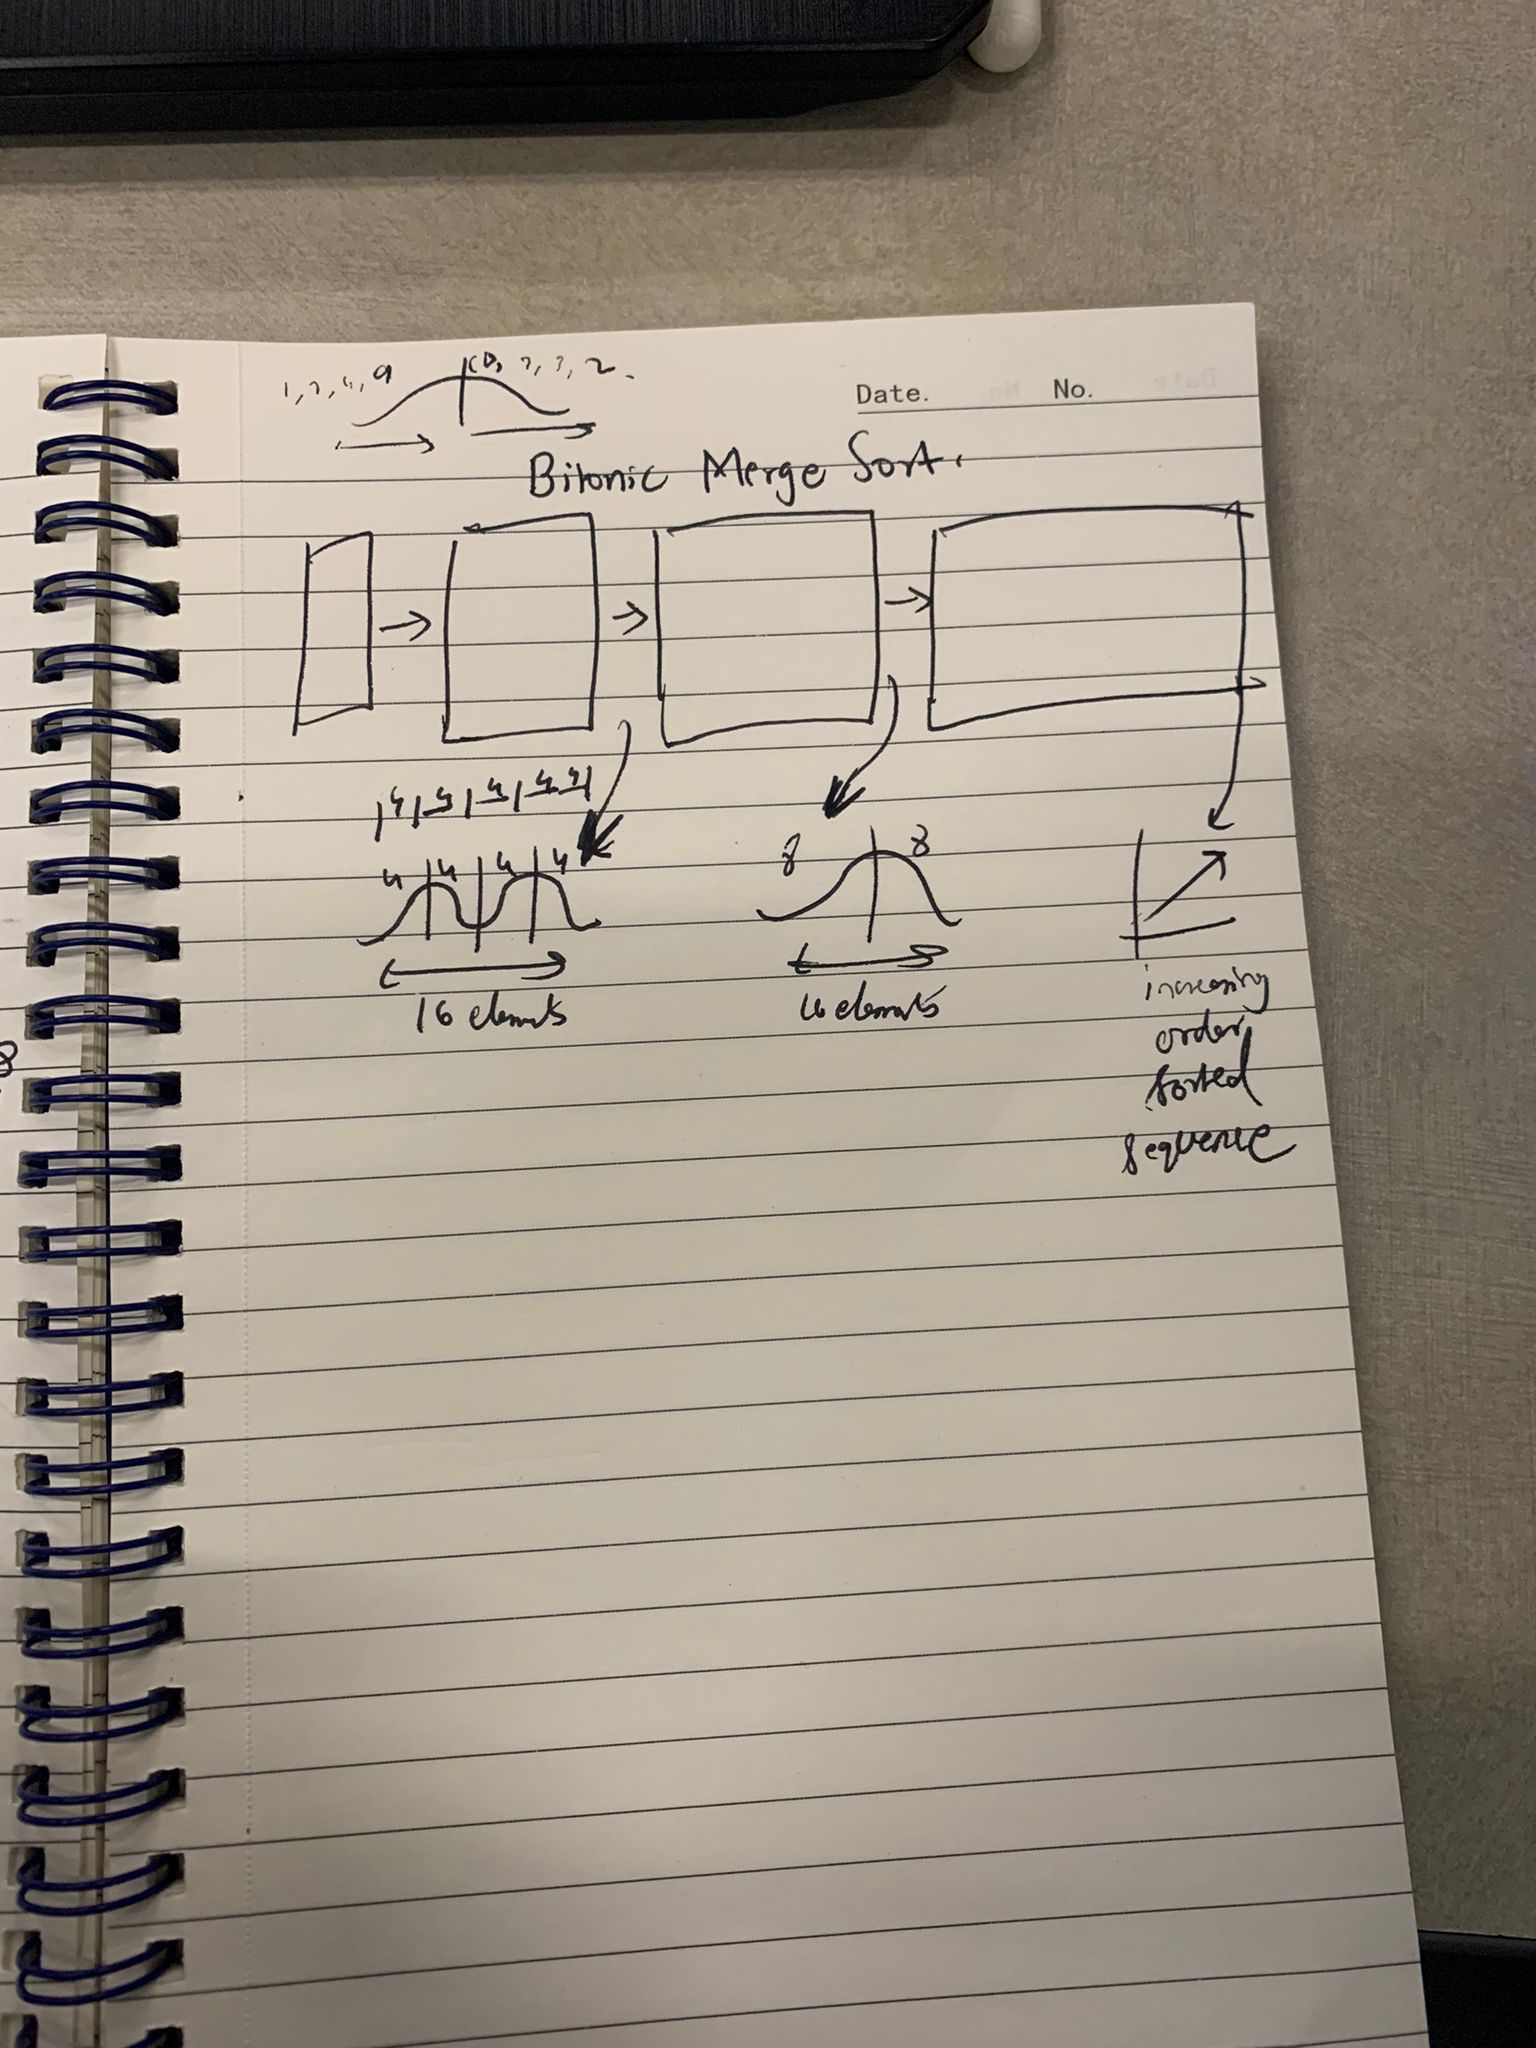 1, 2, 4, 9
10, 7, 3, 2.
Date. No.
Bitonic Merge Sort.
4 4 4 4 4
4 4 4 4
8 8
16 elements
16 elements
increasing
order
sorted
sequence
8